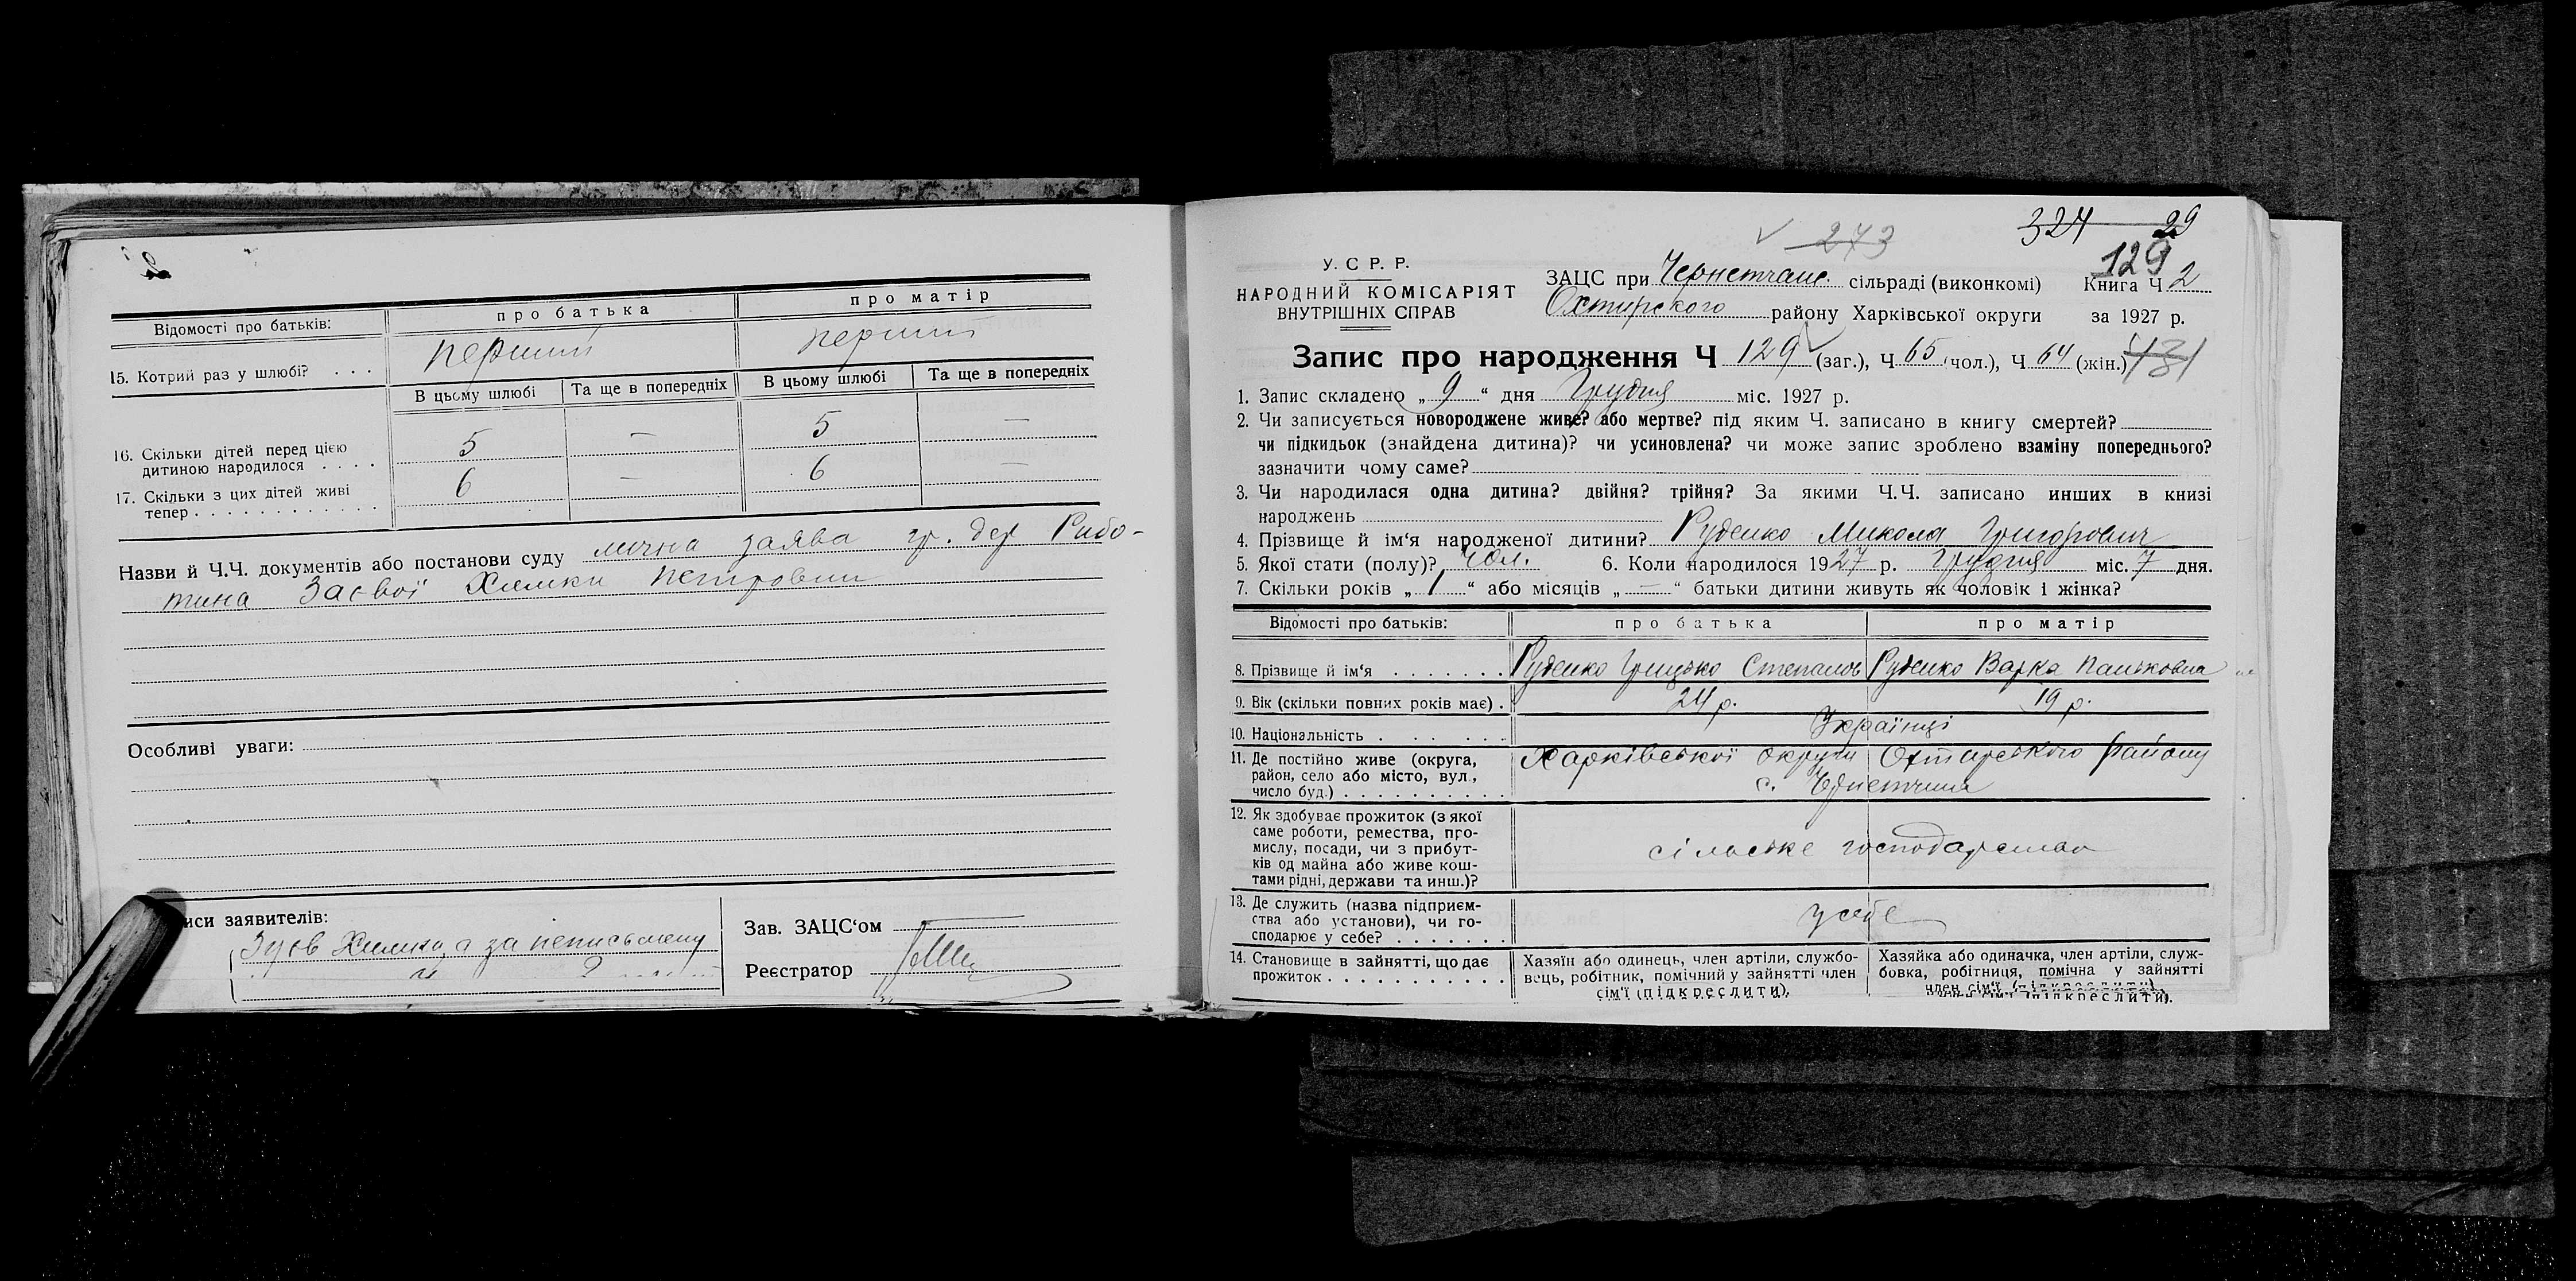 Відомості про батьків: про батька про матір
15. Котрий раз у шлюбі? . . . перший перший
В цьому шлюбі Та ще в попередніх В цьому шлюбі Та ще в попередніх
16. Скільки дітей перед цією
дитиною народилося . . . . 5 — 5 —
17. Скільки з цих дітей живі
тепер . . . . . . . . . . . . . 6 — 6 —
Назви й Ч.Ч. документів або постанови суду лична заява гр. дер Рибо-
тина Заєвої Химки Петровни
Особливі уваги:
иси заявителів:
Зуєв Химка, а за неписьмену
Зав. ЗАЦС‘ом
Реєстратор
324 29
273
129
У. С Р. Р.
НАРОДНИЙ КОМІСАРІЯТ
ВНУТРІШНІХ СПРАВ
ЗАЦС при Чернетчан. сільраді (виконкомі) Книга Ч 2
Охтирского району Харківської округи за 1927 р.
Запис про народження Ч 129 (заг.), Ч 65 (чол.), Ч 64 (жін.) 131
1. Запис складено „ 9 “ дня Грудня міс. 1927 р.
2. Чи записується новороджене живе? або мертве? під яким Ч. записано в книгу смертей?
чи підкидьок (знайдена дитина)? чи усиновлена? чи може запис зроблено взаміну попереднього?
зазначити чому саме?
3. Чи народилася одна дитина? двійня? трійня? За якими Ч.Ч. записано инших в книзі
народжень
4. Прізвище й ім‘я народженої дитини? Руденко Микола Григорович
5. Якої стати (полу)? Чол. 6. Коли народилося 1927 р. Грудня міс. 7 дня.
7. Скільки років „ 1 “ або місяців „ — “ батьки дитини живуть як чоловік і жінка?
Відомості про батьків: про батька про матір
8. Прізвище й ім‘я . . . . . . . Руденко Грицько Степанов Руденко Варка Паньковна
9. Вік (скільки повних років має) . 24 р. 19 р.
10. Національність . . . . . . Українці
11. Де постійно живе (округа, Харківської округи Охтирського району
район, село або місто, вул., с. Чернетчина
число буд.) . . . . . . . . . .
12. Як здобуває прожиток (з якої
саме роботи, ремества, про-
мислу, посади, чи з прибут- сільське господарство
ків од майна або живе кош-
тами рідні, держави та инш.)?
13. Де служить (назва підприєм-
ства або установи), чи го- у себе
сподарює у себе? . . . . . . .
14. Становище в зайнятті, що дає Хазяїн або одинець, член артіли, службо- Хазяйка або одиначка, член артіли, служ-
прожиток . . . . . . . . . . . вець, робітник, помічний у зайнятті член бовка, робітниця, помічна у зайнятті
сім‘ї (підкреслити). член сім‘ї (підкреслити).